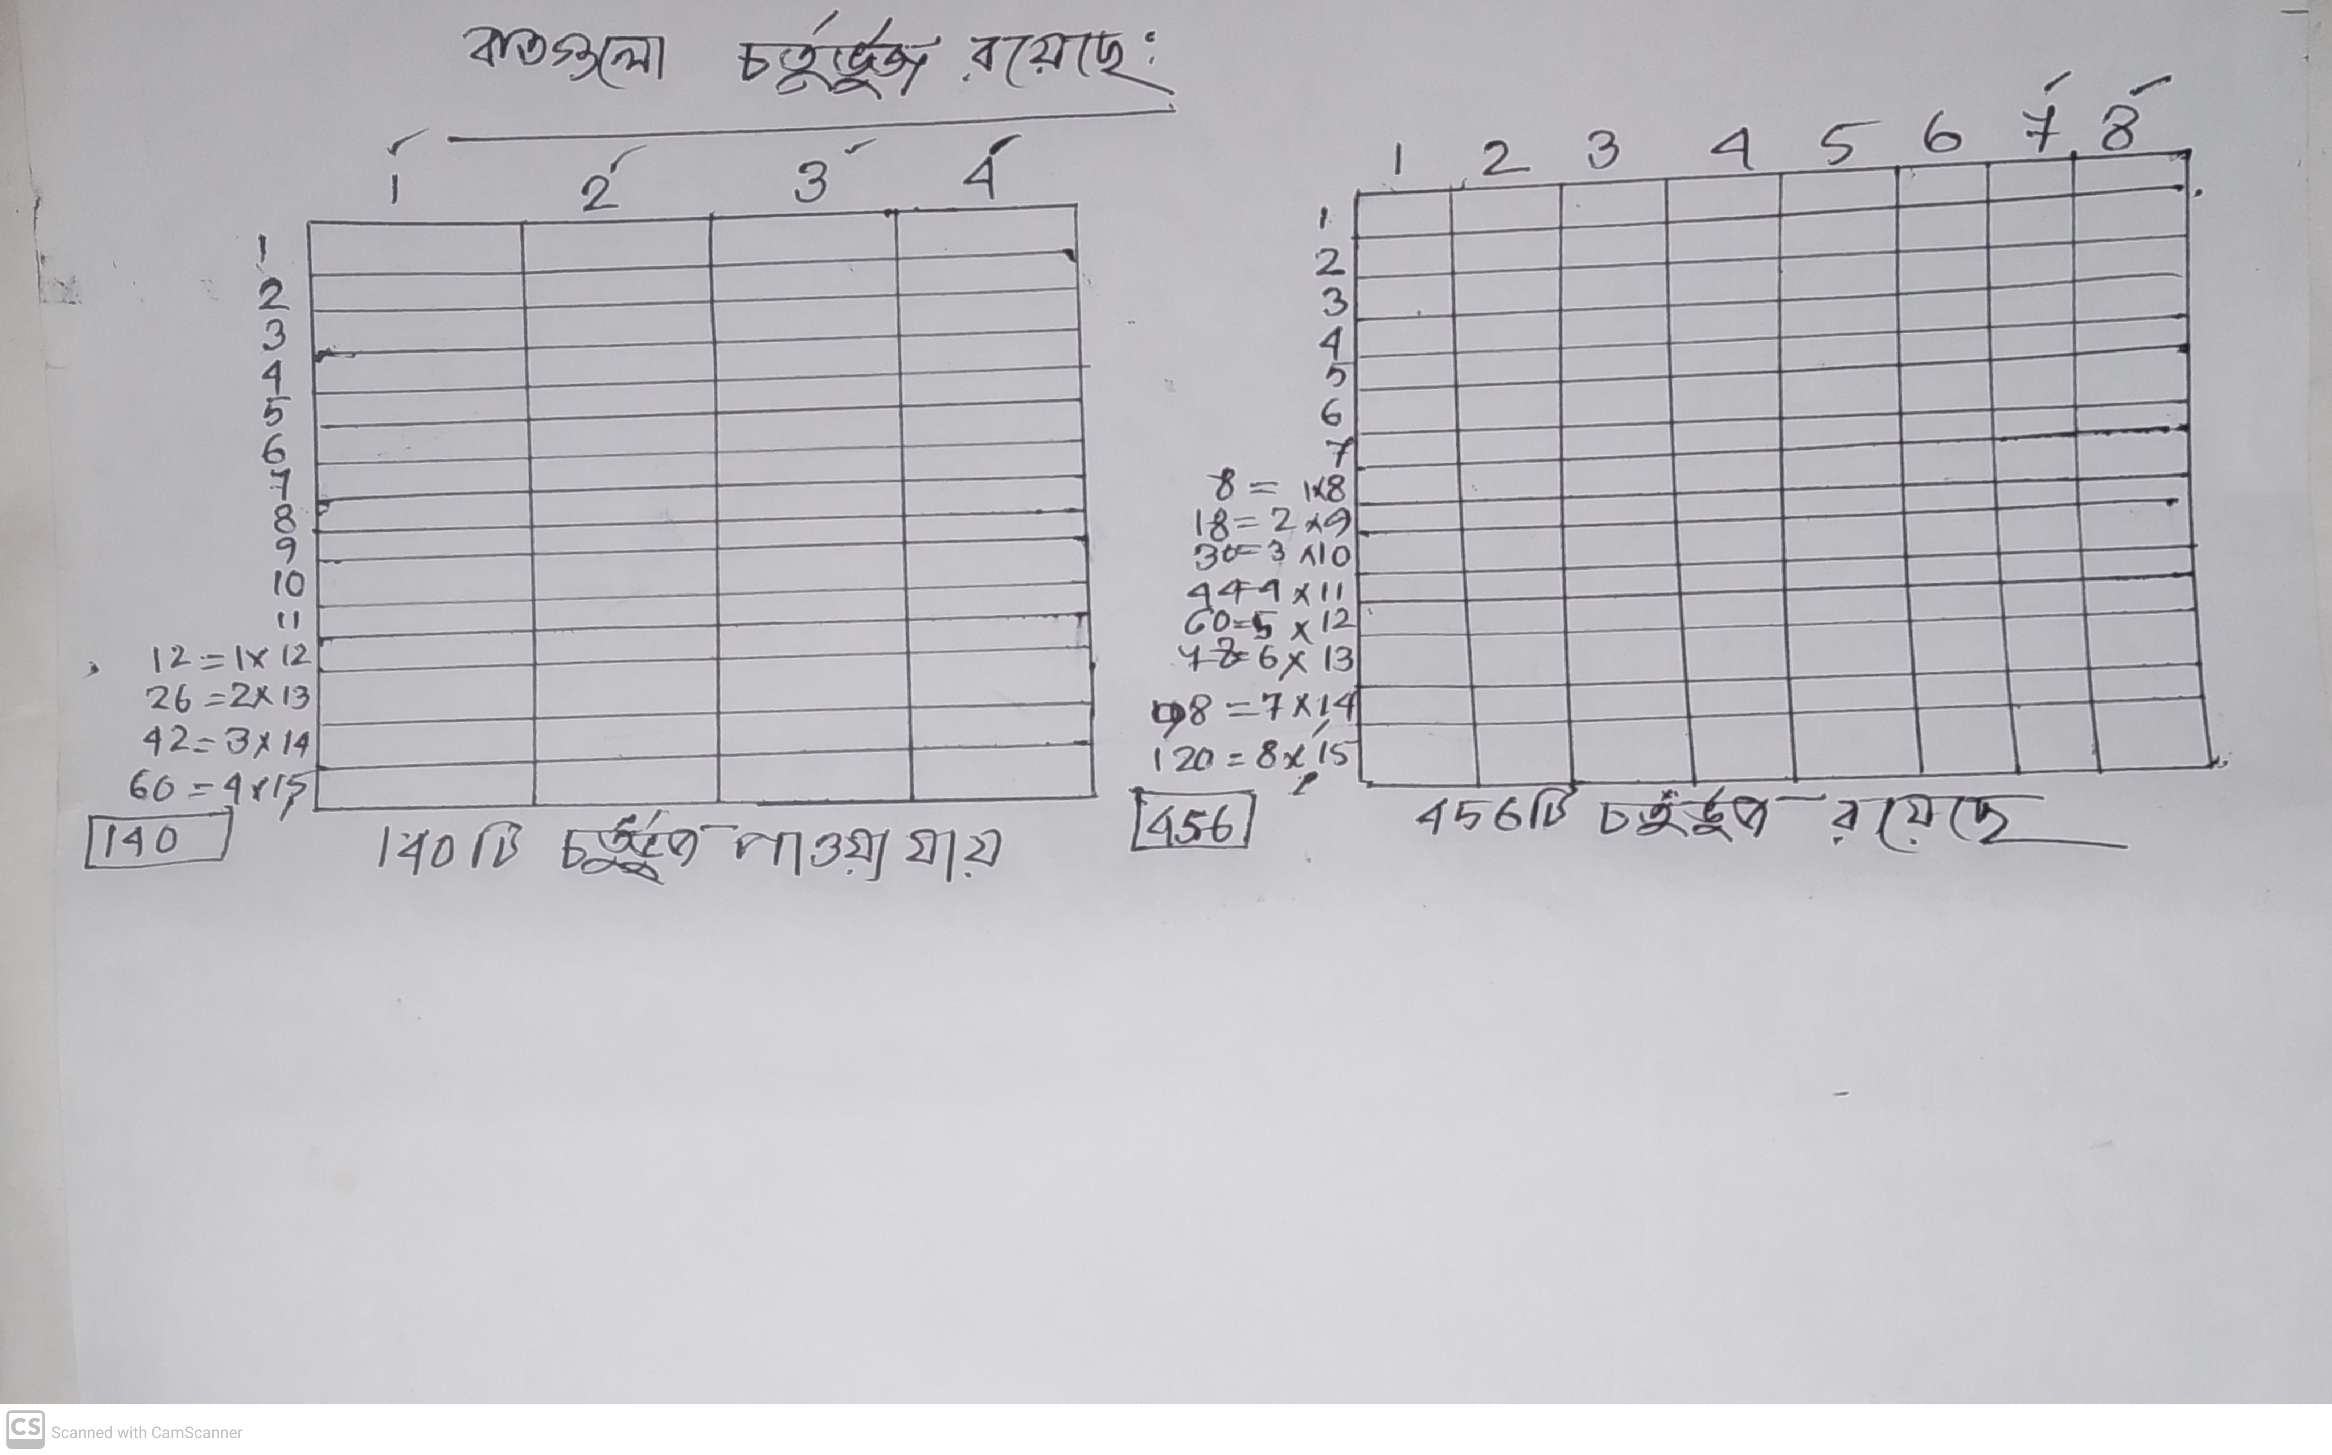 কতগুলো চর্তুর্ভুজ রয়েছে:
1 2 3 4
1
2
3
4
5
6
7
8
9
10
11
12=1x12
26=2x13
42=3x14
60=4x15
140
140টি চর্তুর্ভুজ পাওয়া যায়
1 2 3 4 5 6 7 8
1
2
3
4
5
6
7
8=1x8
18=2x9
30=3x10
44=4x11
60=5x12
78=6x13
98=7x14
120=8x15
456
456টি চর্তুর্ভুজ রয়েছে
CS Scanned with CamScanner